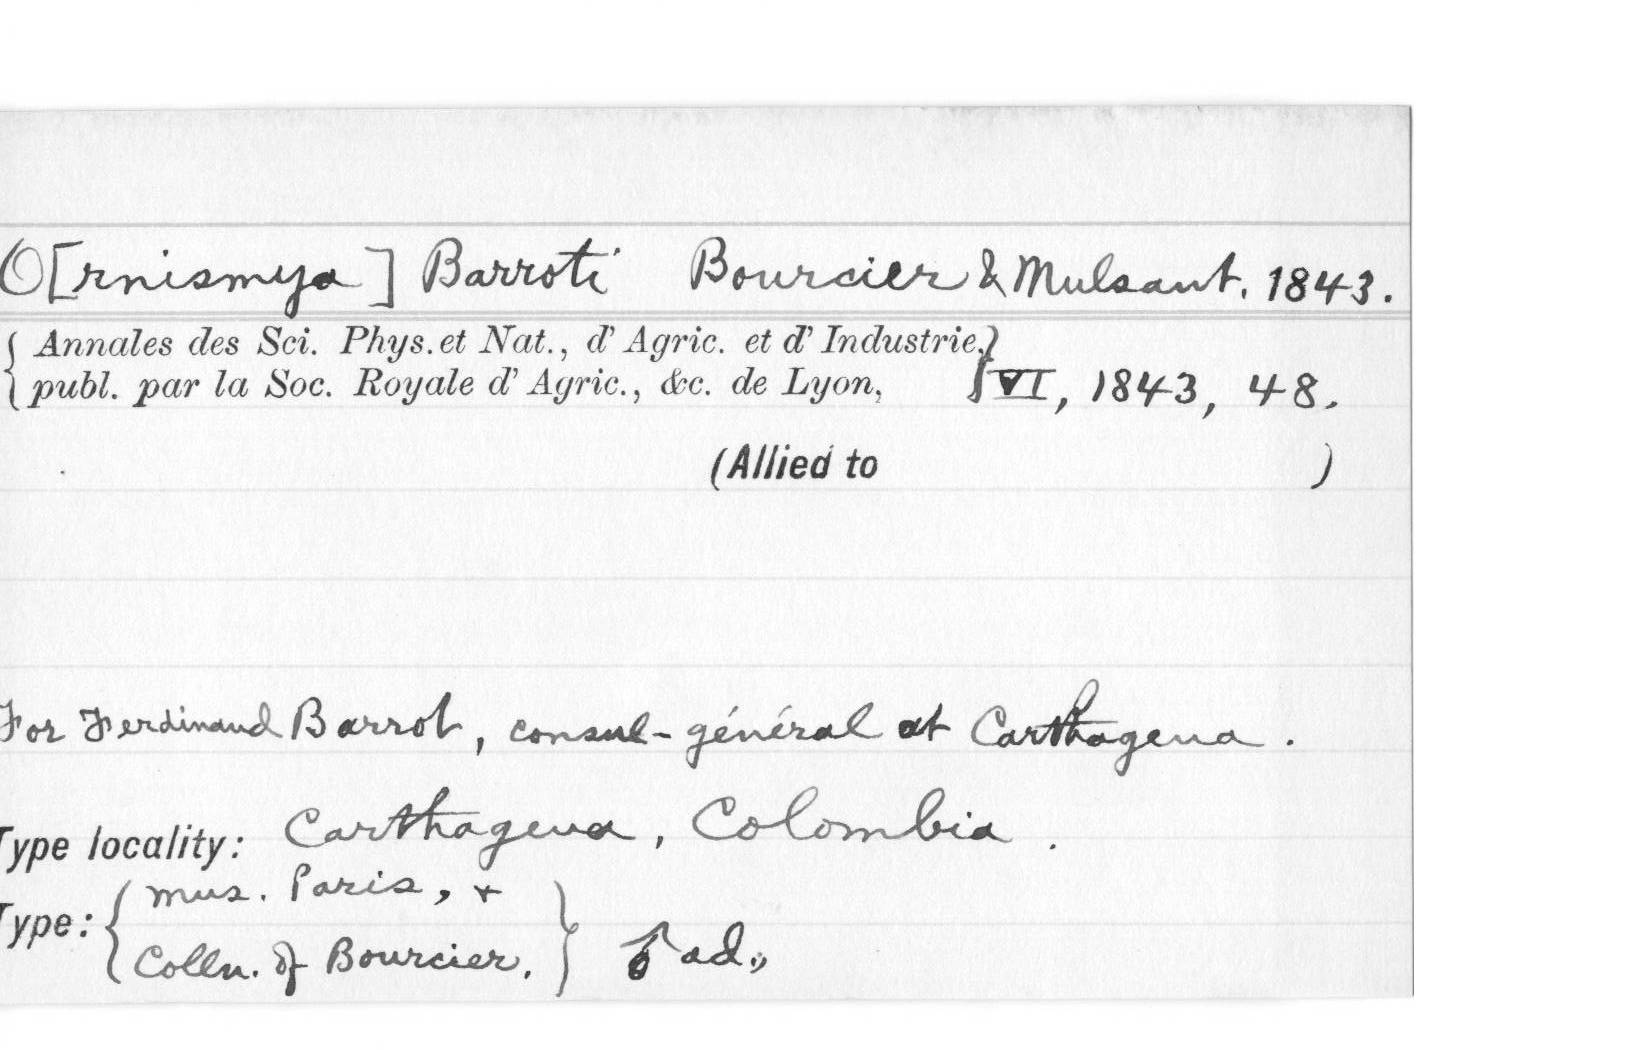 O[rnismya] Barroti Bourcier & Mulsant. 1843.
{ Annales des Sci. Phys. et Nat., d' Agric. et d' Industrie, }
{ publ. par la Soc. Royale d' Agric., &c. de Lyon, } VI, 1843, 48.
(Allied to )
For Ferdinand Barrot, consul-général at Carthagena.
Type locality: Carthagena, Colombia.
Type: { Mus. Paris, +
Colln. of Bourcier. } ♂ ad.,